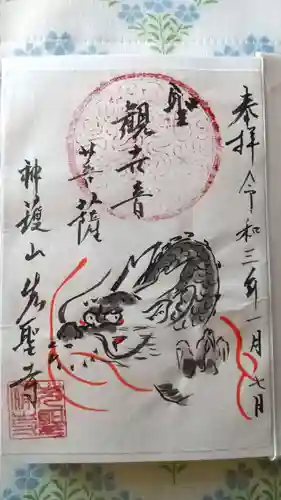 奉拝 令和三年一月七日
聖
観世音
菩薩
神護山 光聖寺